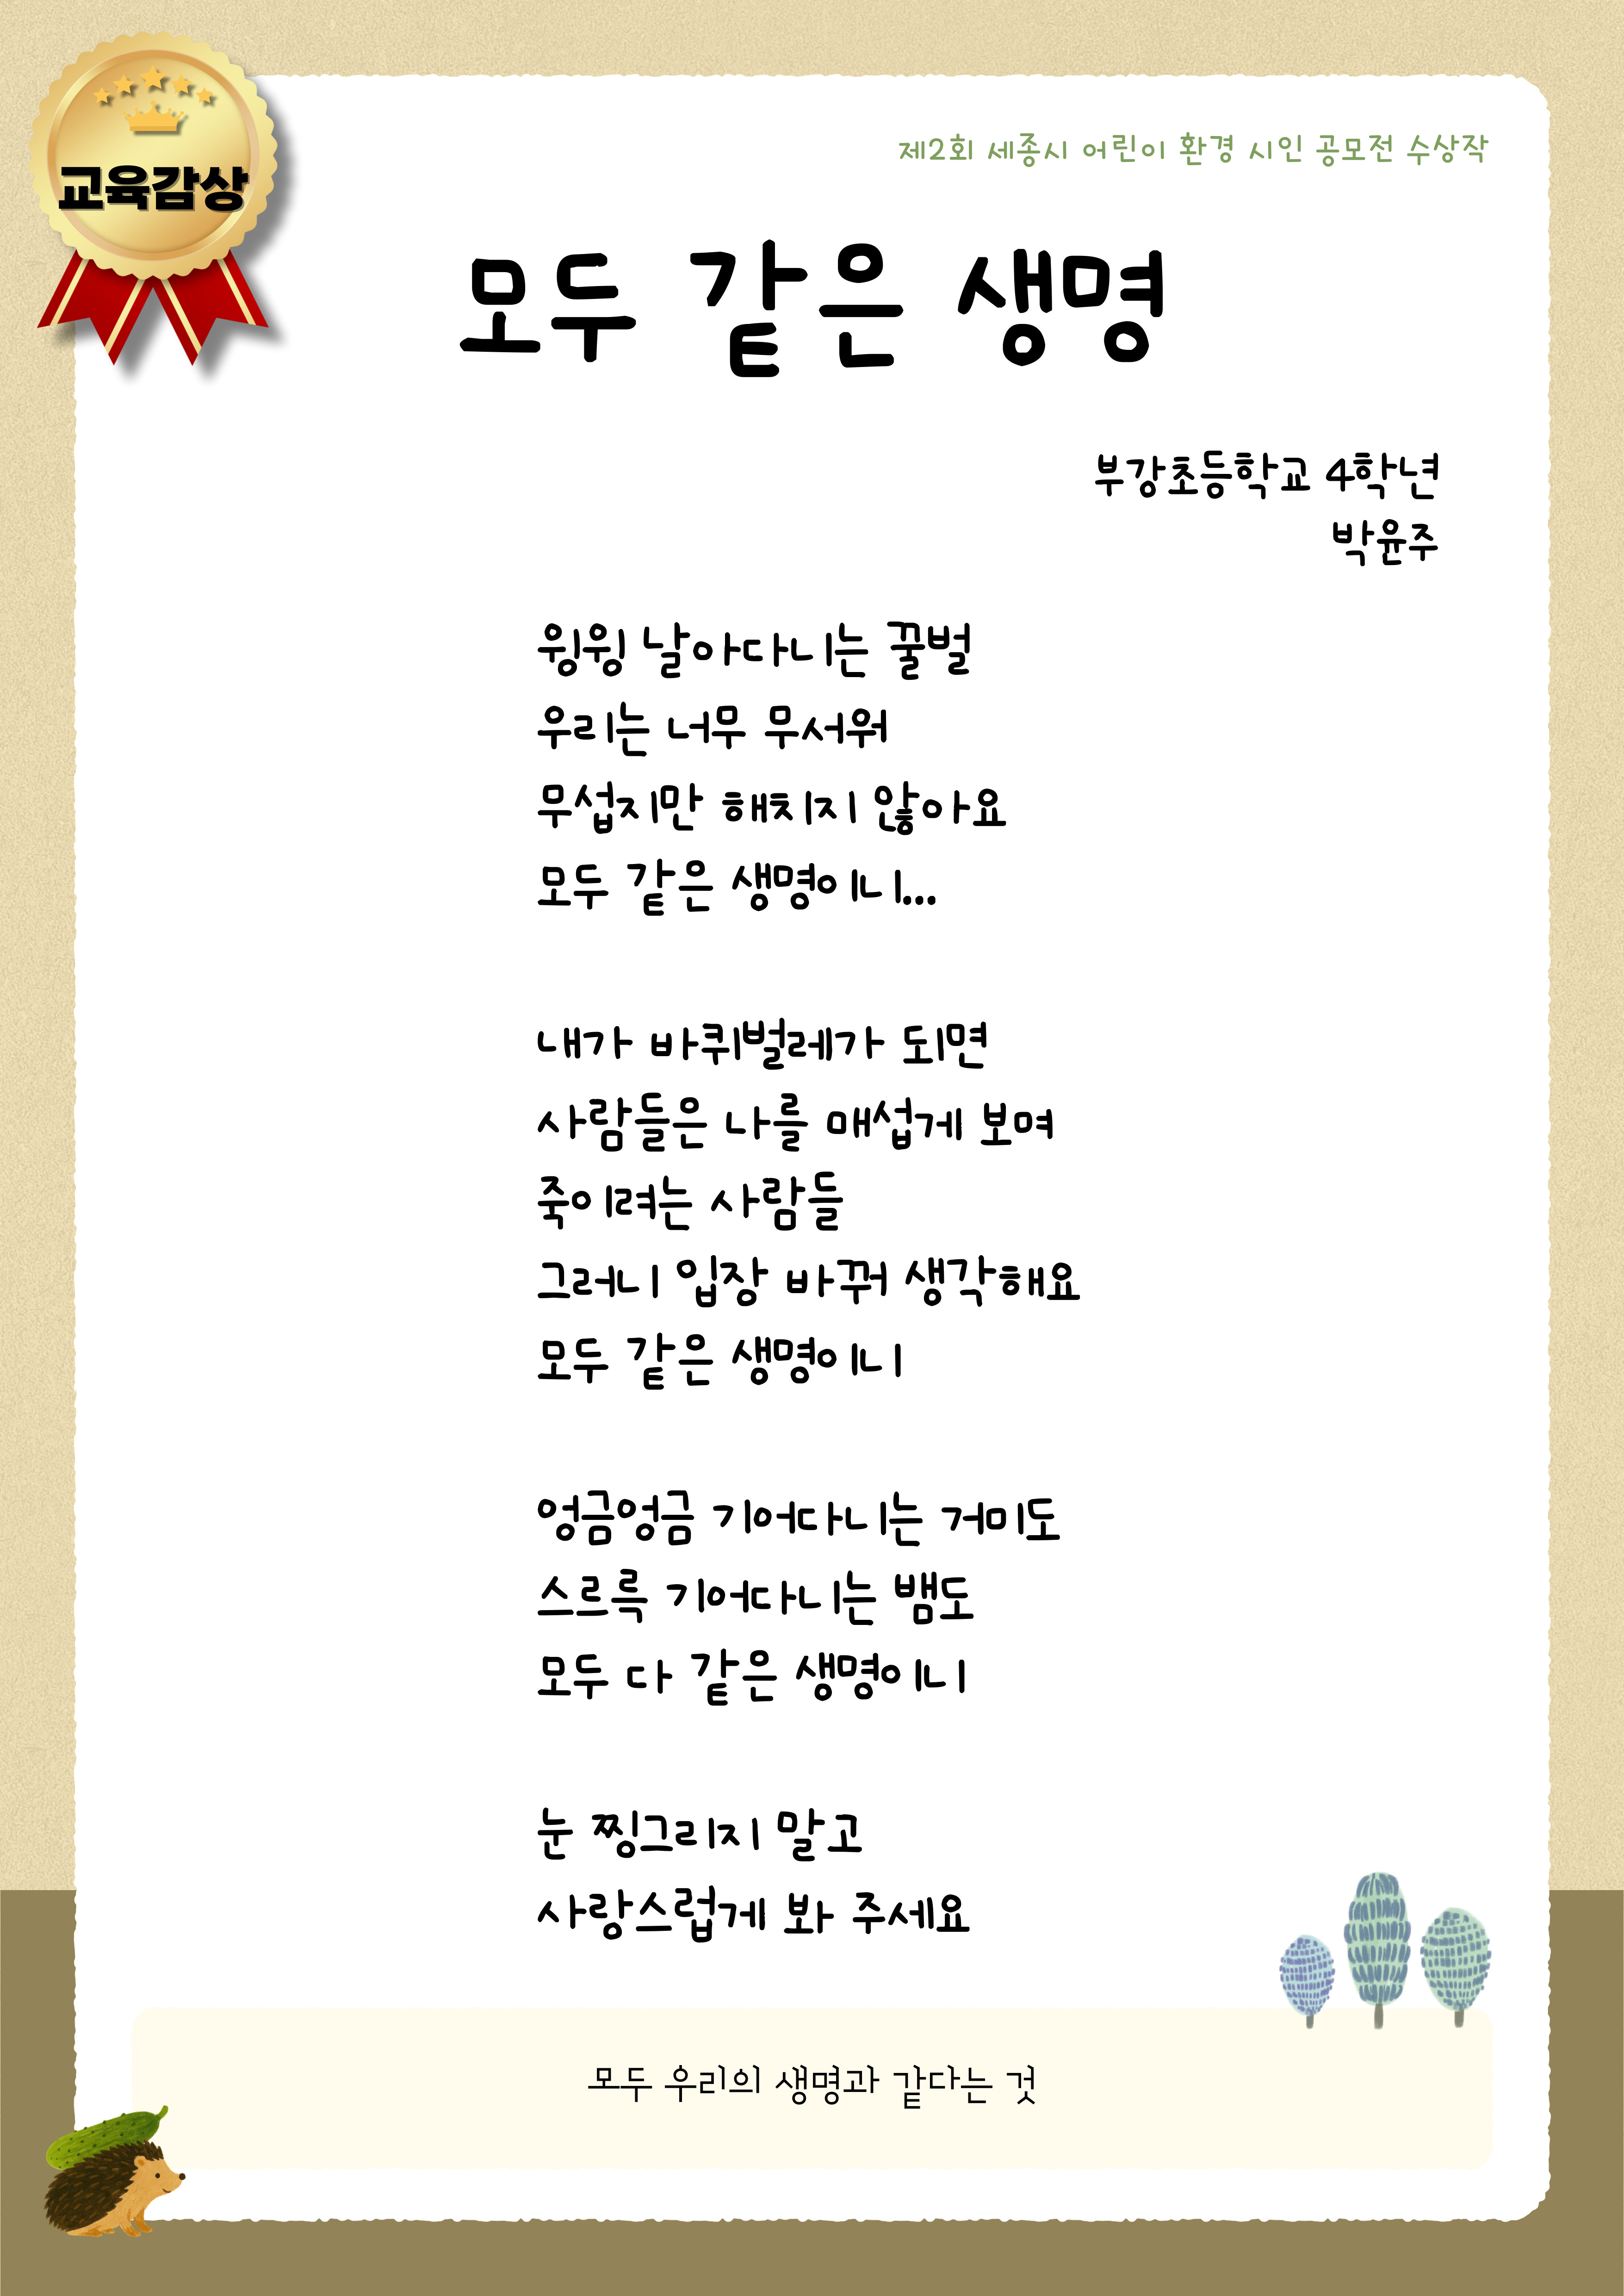 교육감상
제2회 세종시 어린이 환경 시인 공모전 수상작
모두 같은 생명
부강초등학교 4학년
박윤주
윙윙 날아다니는 꿀벌
우리는 너무 무서워
무섭지만 해치지 않아요
모두 같은 생명이니...
내가 바퀴벌레가 되면
사람들은 나를 매섭게 보며
죽이려는 사람들
그러니 입장 바꿔 생각해요
모두 같은 생명이니
엉금엉금 기어다니는 거미도
스르륵 기어다니는 뱀도
모두 다 같은 생명이니
눈 찡그리지 말고
사랑스럽게 봐 주세요
모두 우리의 생명과 같다는 것